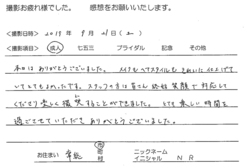 撮影お疲れ様でした。 感想をお願いいたします。
<撮影日時> 2019年 9月 21日( )
<撮影メニュー> 成人 七五三 ブライダル 記念 その他
本日はありがとうございました。 メイクもヘアスタイルもきれいに仕上げて
いてとてもよかったです。 スタッフの方は皆さん終始笑顔で対応して
くださり楽しく撮影することができました。 とても楽しい時間を
過ごさせていただきありがとうございました。
お住まい 県 ニックネーム
イニシャル N R